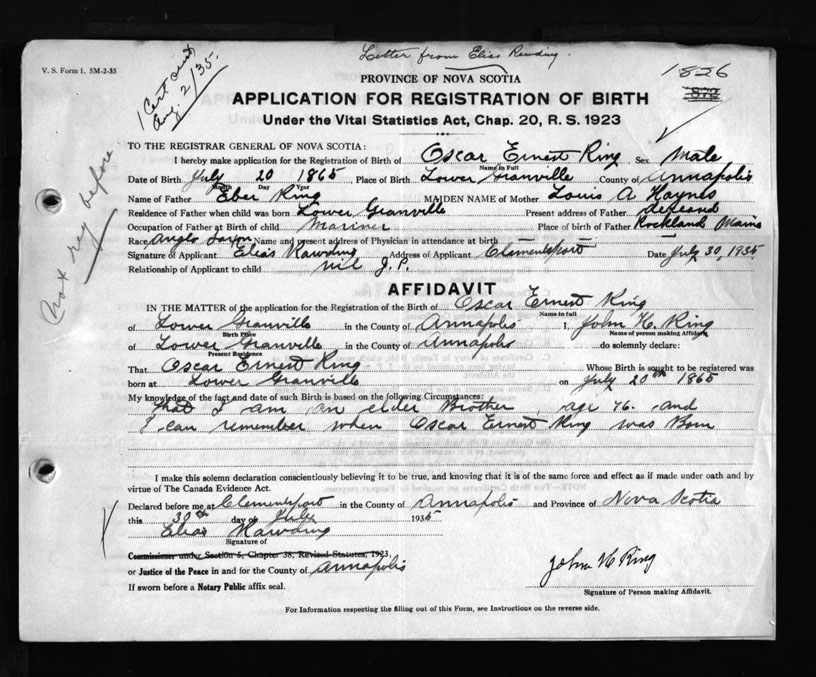 Letter from Elias Rawding.
V. S. Form 1. 5M-2-35
1 Cert sent
Aug. 2/35.
1826
872
PROVINCE OF NOVA SCOTIA
APPLICATION FOR REGISTRATION OF BIRTH
Under the Vital Statistics Act, Chap. 20, R. S. 1923
Not reg before
TO THE REGISTRAR GENERAL OF NOVA SCOTIA:
I hereby make application for the Registration of Birth of Oscar Ernest Ring Sex Male
Name in Full
Date of Birth July 20 1865, Place of Birth Lower Granville County of Annapolis
Month Day Year
Name of Father Eber Ring MAIDEN NAME of Mother Louis A Haynes
Residence of Father when child was born Lower Granville Present address of Father deceasd
Occupation of Father at Birth of child Mariner Place of birth of Father Rockland Maine
Race Anglo Saxon Name and present address of Physician in attendance at birth
Signature of Applicant Elias Rawding Address of Applicant Clementsport Date July 30, 1935
Relationship of Applicant to child nil J. P.
AFFIDAVIT
IN THE MATTER of the application for the Registration of the Birth of Oscar Ernest Ring
Name in full
of Lower Granville in the County of Annapolis I, John H. Ring
Birth Place Name of person making Affidavit
of Lower Granville in the County of Annapolis do solemnly declare:
Present Residence
That Oscar Ernest Ring Whose Birth is sought to be registered was
born at Lower Granville on July 20th 1865
My knowledge of the fact and date of such Birth is based on the following Circumstances:
That I am an elder Brother, age 76. and
I can remember when Oscar Ernest Ring was Born
I make this solemn declaration conscientiously believing it to be true, and knowing that it is of the same force and effect as if made under oath and by
virtue of The Canada Evidence Act.
Declared before me at Clementsport in the County of Annapolis and Province of Nova Scotia
this 30th day of July 1935
Elias Rawding
Signature of
Commissioner under Section 5, Chapter 38, Revised Statutes, 1923,
or Justice of the Peace in and for the County of Annapolis
John H Ring
If sworn before a Notary Public affix seal.
Signature of Person making Affidavit.
For Information respecting the filling out of this Form, see Instructions on the reverse side.